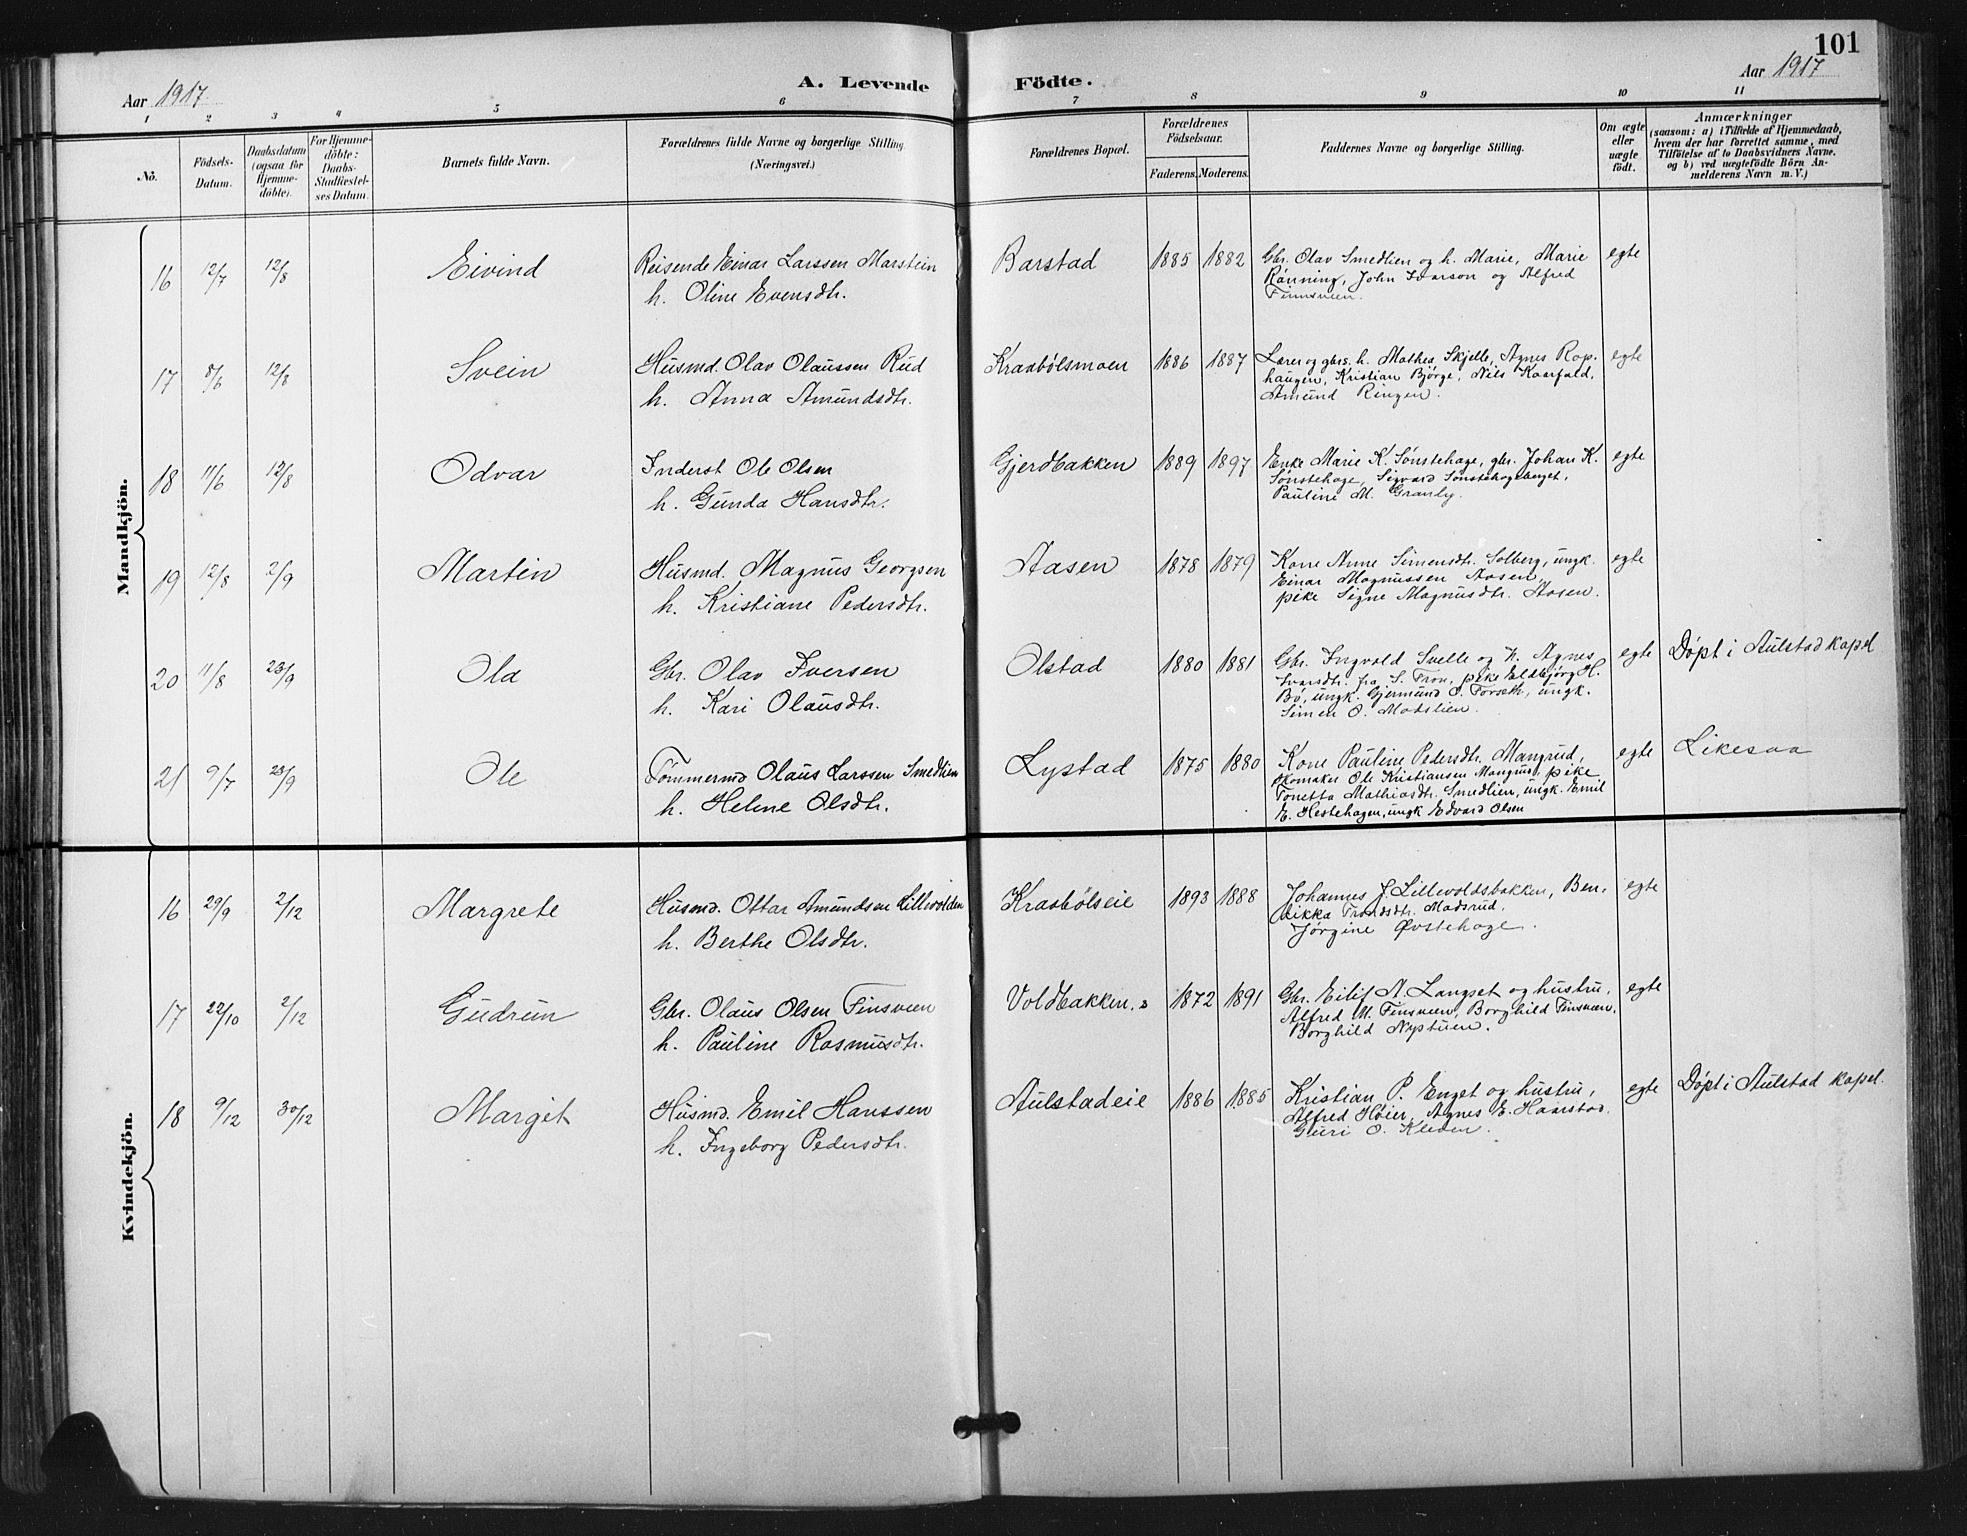 101
Aar 1917
A. Levende Födte.
Aar 1917
1 2 3 4 5 6 7 8 9 10 11
No.
Födsels-Datum.
Daabsdatum (ogsaa for Hjemmedöbte).
For Hjemmedöbte: Daabs-Stadfæstelses Datum.
Barnets fulde Navn.
Forældrenes fulde Navne og borgerlige Stilling (Næringsvei.)
Forældrenes Bopæl.
Forældrenes Födselsaar.
Faderens. Moderens.
Faddernes Navne og borgerlige Stilling.
Om ægte eller uægte födt.
Anmærkninger
(saasom: a) i Tilfælde af Hjemmedaab,
hvem der har forrettet samme, med
Tilföielse af to Daabsvidners Navne.
og b) ved uægtefödte Börn An-
melderens Navn m. V.)
Mandkjön.
16 12/7 12/8 Eivind Reisende Einar Larssen Marstein Barstad 1885 1882 Gbr. Olav Smedlien og h. Marie, Marie egte
h. Oline Evensdtr. Rønning, John Ivarson og Alfred
Finnsveen.
17 8/6 12/8 Svein Husmd. Olav Olaussen Rud Kraabölsmoen 1886 1887 Lærer og gbrs. h. Mathea Skjelle, Agnes Rap- egte
h. Anna Amundsdtr. haugen, Kristian Bjørge, Nils Kaarfald,
Amund Ringen.
18 11/6 12/8 Odvar Inderst Ole Olsen Gjerdbakken 1889 1897 Enke Marie K. Sønstehage, gbr. Johan K. egte
h. Gunda Hansdtr. Sønstehage, Sigvard Sønstehageberget,
Pauline M. Granly.
19 12/8 2/9 Martin Husmd. Magnus Georgsen Aasen 1878 1879 Kone Anne Simensdtr. Solberg, ungk. egte
h. Kristiane Pedersdtr. Einar Magnussen Aasen
pike Signe Magnusdtr. Aasen.
20 11/8 23/9 Ola Gbr. Olav Iversen Olstad 1880 1881 Gbr. Ingvald Svelle og h. Agnes egte Døpt i Aulstad kapel
h. Kari Olausdtr. Ivarsdtr. fra S. Fron, pike Eldbjørg H.
Bø, ungk. Gjermund O. Forseth, ungk.
Simen O. Madslien.
21 9/7 23/9 Ole Tømmermd Olaus Larssen Smedlien Lystad 1875 1880 Kone Pauline Pedersdtr. Mangrud, egte Likesaa
h. Helene Olsdtr. skomaker Ole Kristiansen Mangrud, pike
Tonetta Mathiasdtr. Smedlien, ungk. Emil
E. Hestehagen, ungk Edvard Olsen
Kvindekjön.
16 29/9 2/12 Margrete Husmd. Ottar Amundsen Lillevolden Kraabölseie 1893 1888 Johannes J. Lillevoldsbakken, Ben- egte
h. Berthe Olsdtr. dikka Trondsdtr. Madsrud,
Jørgine Øvstehage.
17 22/10 2/12 Gudrun Gbr. Olaus Olsen Finsveen Voldbakken, s 1872 1891 Gbr. Eilif N. Langset og hustru, egte
h. Pauline Rasmusdtr. Alfred M. Finsveen, Borghild Finsveen,
Borghild Nyptuen.
18 9/12 30/12 Margit Husmd. Emil Hanssen Aulstadeie 1886 1885 Kristian P. Enget og hustru, egte Døpt i Aulstad kapel.
h. Ingeborg Pedersdtr. Alfred Høier, Agnes E. Haarstad
Guri O. Kleven.